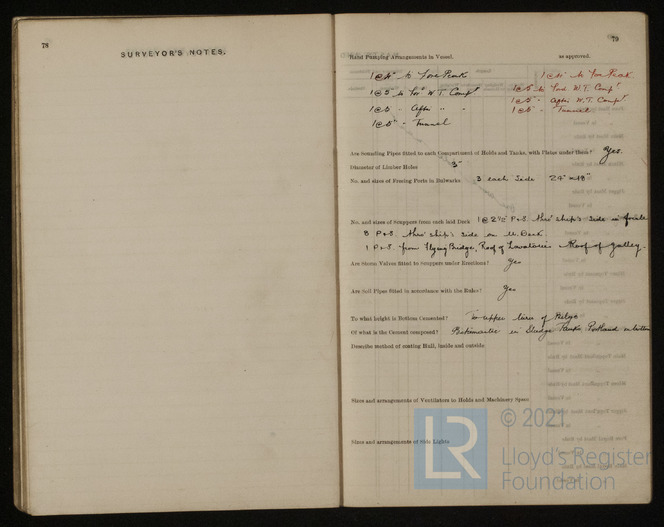 78
SURVEYOR'S NOTES.
79
Hand Pumping Arrangements in Vessel. as approved.
1@4" to Fore Peak 1@4" to Fore Peak
1@5 to For'd W.T. Compt 1@5" to Ford W.T. Compt
1@5 " After " " 1@5" " After W.T. Compt
1@5" " Tunnel 1@5" " Tunnel
Are Sounding Pipes fitted to each Compartment of Holds and Tanks, with Plates under them? Yes.
Diameter of Limber Holes 3"
No. and sizes of Freeing Ports in Bulwarks 3 each Side 24" × 18"
No. and sizes of Scuppers from each laid Deck 1@2½" P & S. thro' ship's side in
8 P & S. thro' ship's side on U. Deck.
1 P & S. from Flying Bridge, Roof of Lavatories Roof of galley.
Are Storm Valves fitted to Scuppers under Erections? Yes
Are Soil Pipes fitted in accordance with the Rules? Yes
To what height is Bottom Cemented? To upper turn of Bilge
Of what is the Cement composed? in Tanks Portland
Describe method of coating Hull, inside and outside
Sizes and arrangements of Ventilators to Holds and Machinery Space
Sizes and arrangements of Side Lights
LR
© 2021
Lloyd's Register
Foundation